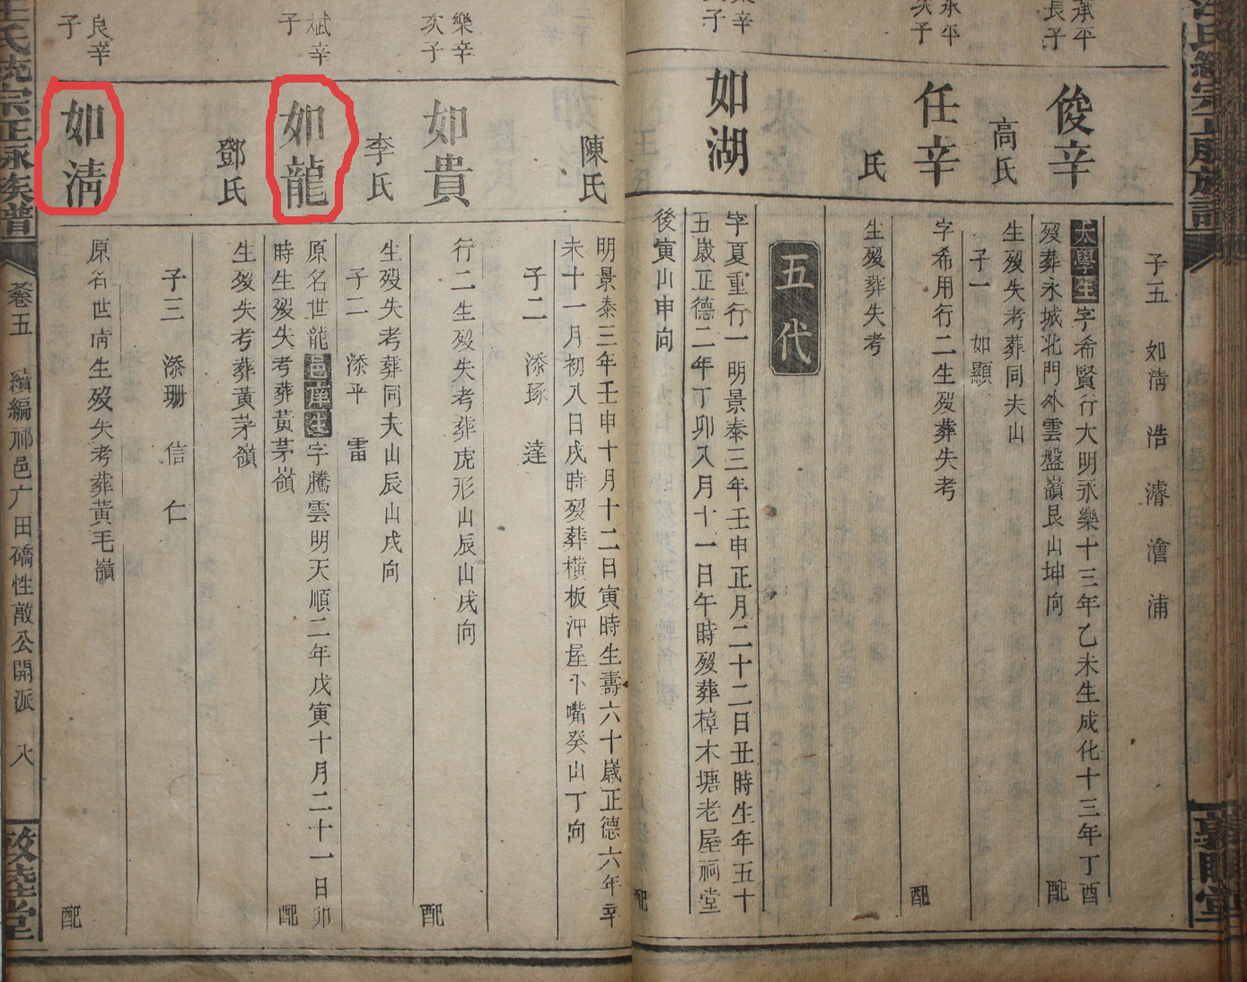 承平
長子
永平
次子
樂辛
次子
斌辛
子
良辛
子
子五 如淸 浩 濬 澮 浦
俊辛
太學生字希賢行大明永樂十三年乙未生成化十三年丁酉
歿葬永城北門外雲盤嶺艮山坤向 配
高氏
生歿失考葬同夫山
子一 如顯
任辛
字希用行二生歿葬失考 配
氏
生歿葬失考
五代
如湖
字夏重行一明景泰三年壬申正月二十二日丑時生年五十
五歲正德二年丁卯八月十一日午時歿葬樟木塘老屋祠堂
後寅山申向 配
陳氏
明景泰三年壬申十月十二日寅時生壽六十歲正德六年辛
未十一月初八日戌時歿葬橫板沖屋下嘴癸山丁向
子二 添琢 達
樂辛
次子
如貴
行二生歿失考葬虎形山辰山戌向 配
李氏
生歿失考葬同夫山辰山戌向
子二 添平 雷
如龍
原名世龍邑庠生字騰雲明天順二年戊寅十月二十一日卯
時生歿失考葬黃茅嶺 配
鄧氏
生歿失考葬黃茅嶺
子三 添珊 信 仁
如淸
原名世淸生歿失考葬黃毛嶺 配
汪氏統宗正脉族譜
卷五 續編祁邑